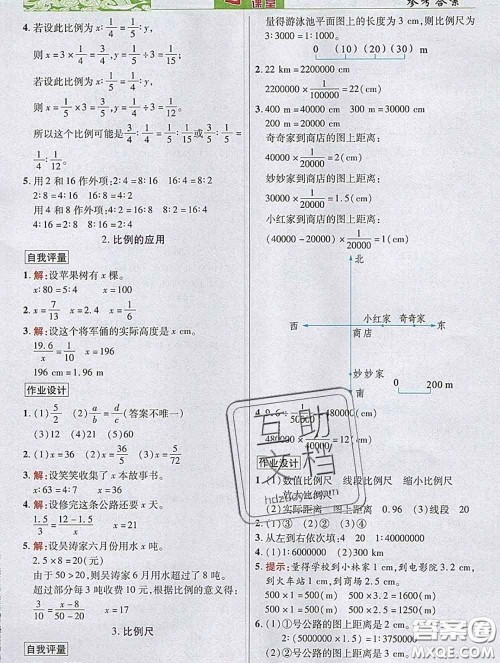 课堂
参考答案
4. 若设此比例为x∶1/4=1/5∶y,y÷3=1/5
则x=3×1/4=3/4,y=1/5×3=3/5
若设此比例为x∶1/4=1/5∶y,y÷3=1/5
则x=1/5×1/4
所以这个比例可能是3/4∶1/4=1/5∶1/15或3/4∶1/5=
1/4∶1/12。
5. 用2和16作外项:2∶4=8∶16 2∶8=4∶16
用4和8作外项:4∶2=16∶8 4∶16=2∶8
2. 比例的应用
自我评量
1. 解:设苹果树有x棵。
x∶80=5∶4 x=100
2. x=7/13 x=0.4 x=5/72
3. 解:设这个将军俑的实际高度是x cm。
19.6/x=1/10 x=196
196 cm=1.96 m
作业设计
1. (1)5/2 (2)a/b=d/c(答案不唯一)
3. 解:设笑笑收集了x本故事书。
4. 解:设修完这条公路还要x天。
1.5/3=(12-1.5)/x x=21
5. 解:设吴涛家六月份用水x吨。
由于50>20,则吴涛家6月用水超过了8吨。
超过部分每3吨收费10元,根据比例的意义得:
3/10=(x-8)/(50-20) x=17
3. 比例尺
自我评量
量得游泳池平面图上的长度为3 cm,比例尺
0 (10) (20) (30) (40)m
2. 22 km=2200000 cm
2200000×1/100000=22(cm)
3. 400 m=40000 cm 300 m=30000 cm
200 m=20000 cm
奇奇家到商店的图上距离:
40000×1/20000=2(cm)
妙妙家到商店的图上距离:
30000×1/20000=1.5(cm)
小红家到商店的图上距离:
(40000-20000)×1/20000=1(cm)
北
西 商店 小红家 奇奇家 东
妙妙家
南 0 200 m
作业设计
1. (1)数值比例尺 线段比例尺 缩小比例尺
(2)实际距离 图上距离 0.96 (4)20
2. (1)① (2)②
3. 从左到右依次填:4 20
4. (1)1∶6000000 (2)300 km
5. 提示:量得学校到小林家1 cm,到电影院3.2 cm,
到火车站1 cm,到体育馆2.5 cm。
500×1=500(m) 500×3.2=1600(m)
500×1=500(m) 500×2.5=1250(m)
6. (1)①号公路的图上距离是2 cm。
(2)②号公路的图上距离是2 cm。1∶3750000
互助文档
hdzuoyewang.com
答案圈
MXQE.COM